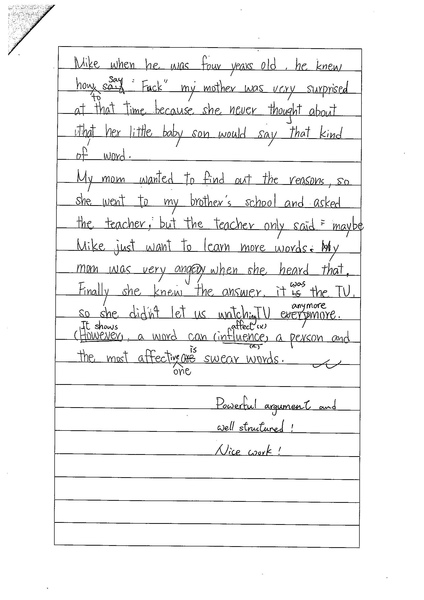 Mike when he was four years old. he knew
say
how said "Fuck" my mother was very surprised
to
at that time because she never thought about
that her little baby son would say that kind
of word.
My mom wanted to find out the reasons, so
she went to my brother's school and asked
the teacher, but the teacher only said = maybe
Mike just want to learn more words. My
mom was very angry when she heard that.
was
Finally she knew the answer, it is the TV.
anymore
so she didn't let us watching TV everymore.
It shows affect (x)
(However), a word can (influence) a person and
is
the most affective swear words.
one
Powerful argument and
well structured!
Nice work!